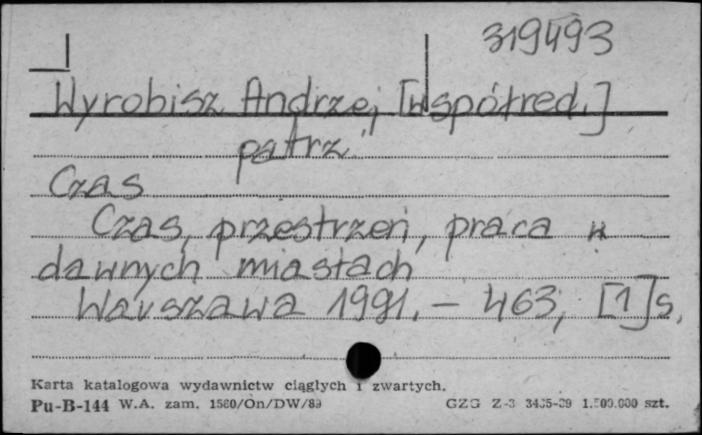 319493
Wyrobisz Andrzej [współred.]
patrz
Czas
Czas, przestrzeń, praca w
dawnych miastach
Warszawa 1991. – 463, [1] s.
Karta katalogowa wydawnictw ciągłych i zwartych.
Pu-B-144 W.A. zam. 1560/On/DW/89 GZG Z-3 1.500.000 szt.